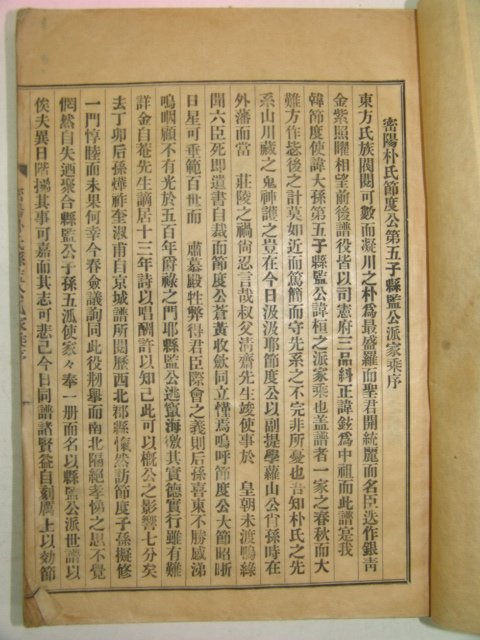 密陽朴氏節度公第五子縣監公派家乘序
東方氏族閥閱可數而凝川之朴爲最盛羅而聖君開統麗而名臣迭作銀靑
金紫照曜相望前後譜役皆以司憲府三品糾正諱鉉爲中祖而此譜寔我
韓節度使諱大孫第五子縣監公諱桓之派家乘也盖譜者一家之春秋而大
難方作毖後之計莫如近而篤簡而守先系之不完非所憂也吾知朴氏之先
系山川藏之鬼神護之豈在今日汲汲耶節度公以副提學蘿山公胄孫時在
外藩而當 莊陵之禍尙忍言哉叔父淸齋先生竣使事於 皇朝未渡鴨綠
聞六臣死卽遺書自裁而節度公蒼黃收斂同立慬焉嗚呼節度公大節昭晣
日星可垂範百世而 肅慕嚴牲幣得君臣際會之義則后孫喜東不勝感涕
嗚咽顧不有光於五百年爵祿之門耶縣監公逃竄海徼其實德實行雖有難
詳金自菴先生謫居十三年詩以唱酬許以知己此可以槪公之影響七分矣
去丁卯后孫燁祚奎淑甫自京城譜所閱歷西北郡縣慨然訪節度子孫擬修
一門惇睦而未果何幸今春僉議詢同此役刱擧而南北隔絶孝悌之思不覺
惘然自失迺聚合縣監公子孫五派使家々奉一册而名以縣監公派世譜以
俟夫異日階梯其事可嘉而其志可悲已今日同譜諸賢益自刻勵上以効節